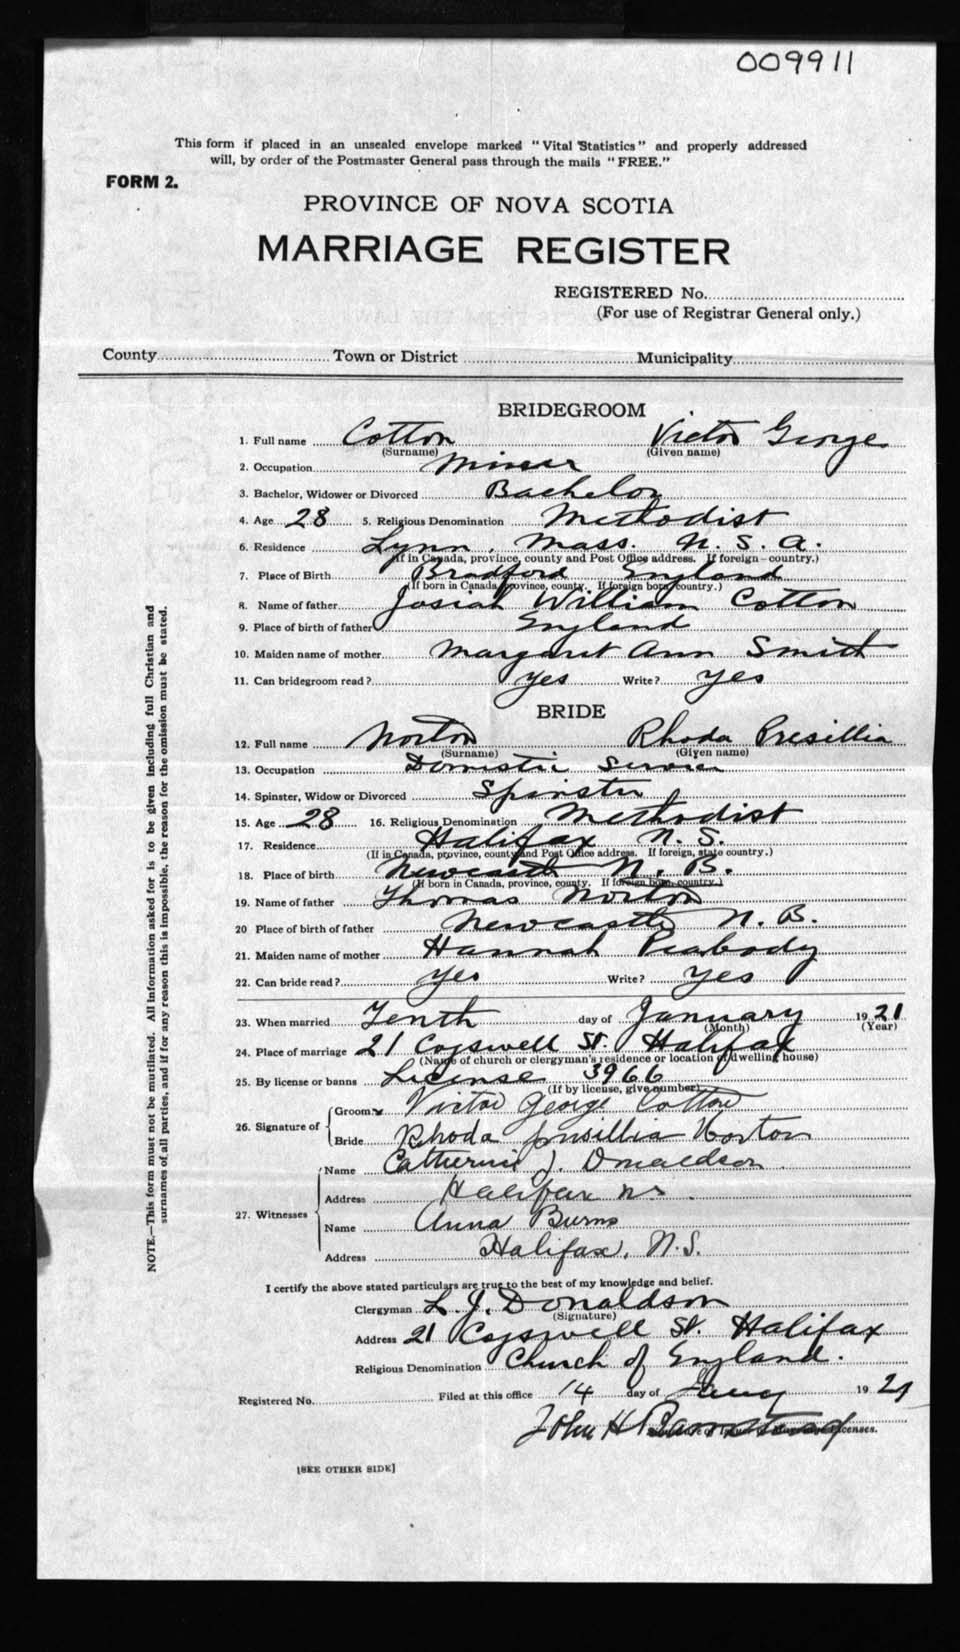 009911
This form if placed in an unsealed envelope marked "Vital Statistics" and properly addressed
will, by order of the Postmaster General pass through the mails "FREE."
FORM 2.
PROVINCE OF NOVA SCOTIA
MARRIAGE REGISTER
REGISTERED No.
(For use of Registrar General only.)
County Town or District Municipality
BRIDEGROOM
1. Full name Cotton Victor George
(Surname) (Given name)
2. Occupation Miner
3. Bachelor, Widower or Divorced Bachelor
4. Age 28 5. Religious Denomination Methodist
6. Residence Lynn, Mass. U. S. A.
(If in Canada, province, county and Post Office address. If foreign—country.)
7. Place of Birth Bradford England
(If born in Canada, province, county. If foreign born, country.)
8. Name of father Josiah William Cotton
9. Place of birth of father England
10. Maiden name of mother Margaret Ann Smith
11. Can bridegroom read? yes Write? yes
BRIDE
12. Full name Norton Rhoda Presillia
(Surname) (Given name)
13. Occupation Domestic Servant
14. Spinster, Widow or Divorced Spinster
15. Age 28 16. Religious Denomination Methodist
17. Residence Halifax N. S.
(If in Canada, province, county and Post Office address. If foreign, state country.)
18. Place of birth Newcastle N. B.
(If born in Canada, province, county. If foreign born, country.)
19. Name of father Thomas Norton
20 Place of birth of father Newcastle N. B.
21. Maiden name of mother Hannah Peabody
22. Can bride read? yes Write? yes
23. When married Tenth day of January 1921
(Month) (Year)
24. Place of marriage 21 Cogswell St. Halifax
(Name of church or clergyman's residence or location of dwelling house)
25. By license or banns License 3966
(If by license, give number)
26. Signature of
Groom Victor George Cotton
Bride Rhoda prisillia Norton
27. Witnesses
Name Catherine J. Donaldson
Address Halifax NS.
Name Anna Burns
Address Halifax, N.S.
I certify the above stated particulars are true to the best of my knowledge and belief.
Clergyman L. J. Donaldson
(Signature)
Address 21 Cogswell St. Halifax
Religious Denomination Church of England.
Registered No. Filed at this office 14 day of Jany 1921
John H Barnstead
Licenses.
[SEE OTHER SIDE]
NOTE.—This form must not be mutilated. All information asked for is to be given including full Christian and
surnames of all parties, and if for any reason this is impossible, the reason for the omission must be stated.